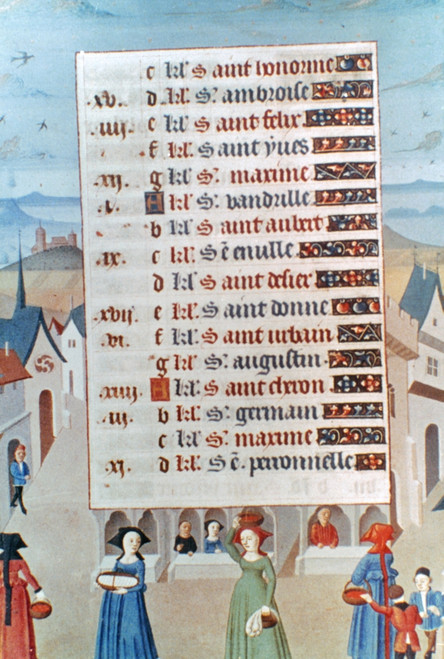 c kl' Saint honorine
.xv. d kl' S'. ambroise
.iiii. e kl' Saint felix
f kl' Saint yues
.xii. g kl' S'. maxime
.i. A kl' S'. vandrille
b kl' Saint aubert
.ix. c kl' S'e enulle
d kl' Saint desier
.xvii. e kl' Saint donne
.vi. f kl' Saint urbain
g kl' S'. augustin
.xiiii. A kl' Saint cheron
.iii. b kl' S'. germain
c kl' S'. maxime
.xi. d kl' S'e. peronnelle